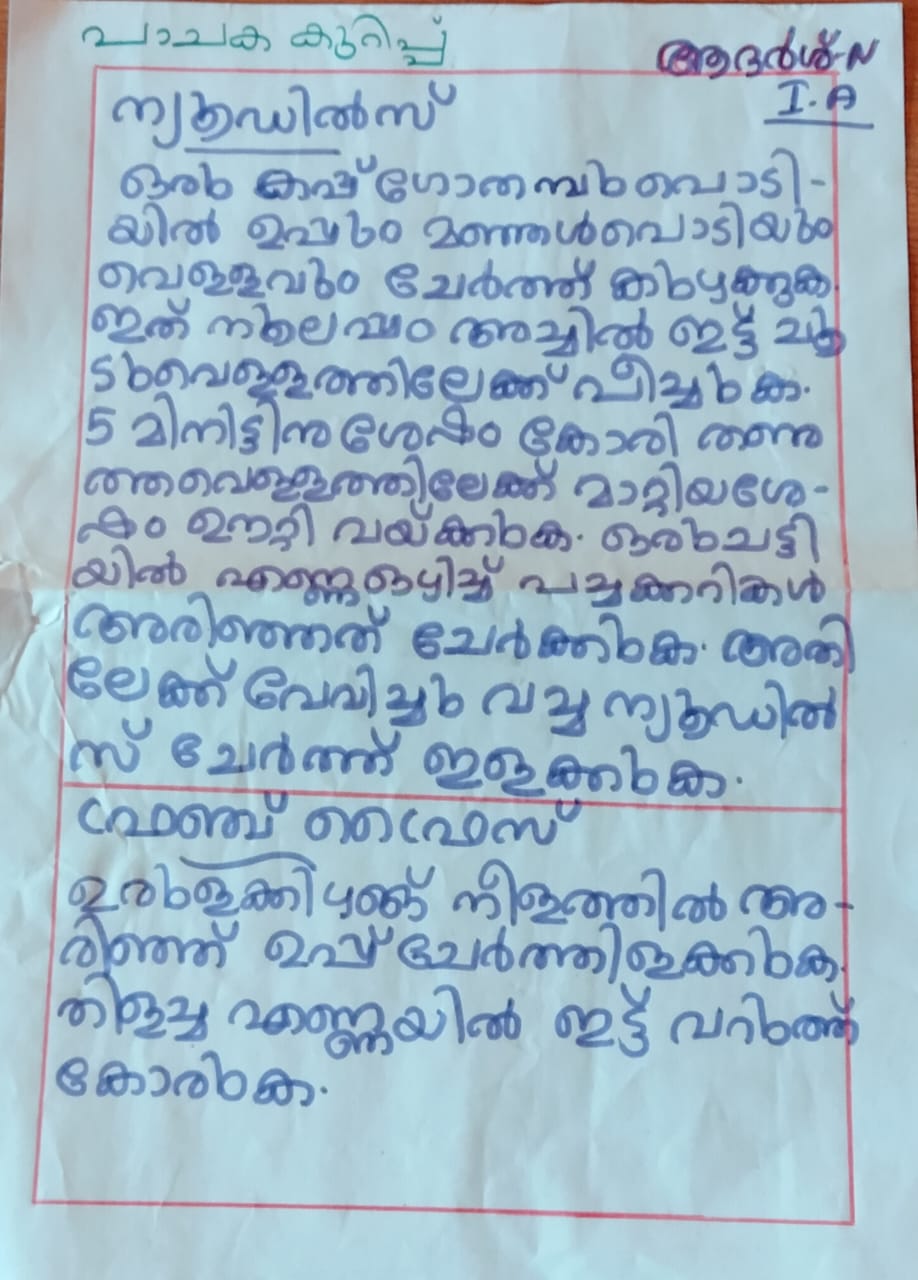 പാചക കുറിപ്പ്
ആദർശ്-N
I. A
ന്യൂഡിൽസ്
ഒരു കപ്പ് ഗോതമ്പുപൊടി-
യിൽ ഉപ്പും മഞ്ഞൾപൊടിയും
വെള്ളവും ചേർത്ത് കുഴക്കുക.
ഇത് നൂലപ്പം അച്ചിൽ ഇട്ട് ചൂ
ടുവെള്ളത്തിലേക്ക് പീച്ചുക.
5 മിനിട്ടിനുശേഷം കോരി തണു
ത്തവെള്ളത്തിലേക്ക് മാറ്റിയശേ-
ഷം ഊറ്റി വയ്ക്കുക. ഒരുചട്ടി
യിൽ എണ്ണഒഴിച്ച് പച്ചക്കറികൾ
അരിഞ്ഞത് ചേർക്കുക. അതി
ലേക്ക് വേവിച്ചു വച്ച ന്യൂഡിൽ
സ് ചേർത്ത് ഇളക്കുക.
ഫ്രഞ്ച് ഫ്രൈസ്
ഉരുളക്കിഴങ്ങ് നീളത്തിൽ അ-
രിഞ്ഞ് ഉപ്പ് ചേർത്തിളക്കുക.
തിളച്ച എണ്ണയിൽ ഇട്ട് വറുത്ത്
കോരുക.